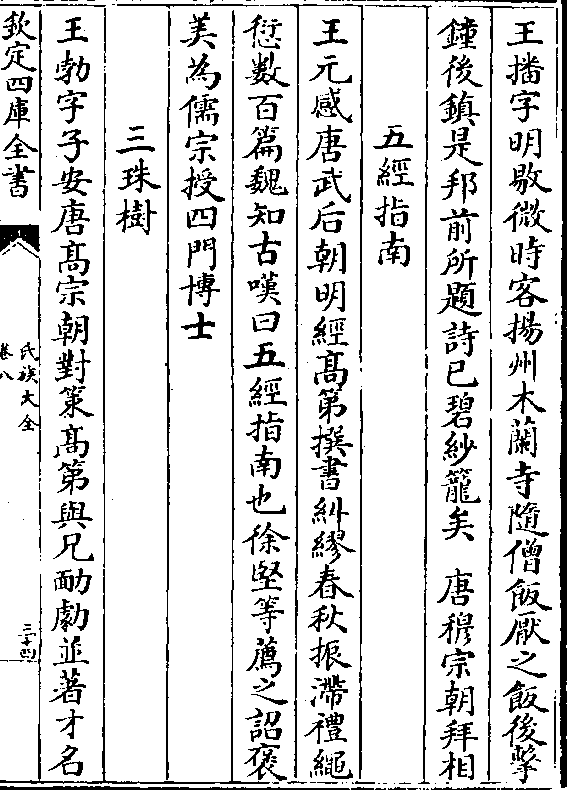 王播字明敭微時客揚州木蘭寺隨僧飯厭之飯後擊
鐘後鎮是邦前所題詩已碧紗籠矣　唐穆宗朝拜相
五經指南
王元感唐武后朝明經高第撰書糾繆春秋振滯禮繩
愆數百篇魏知古嘆曰五經指南也徐堅等薦之詔褒
美為儒宗授四門博士
三珠樹
王勃字子安唐高宗朝對策高第與兄勔勮並著才名
欽定四庫全書
氏族大全
卷八
三十四